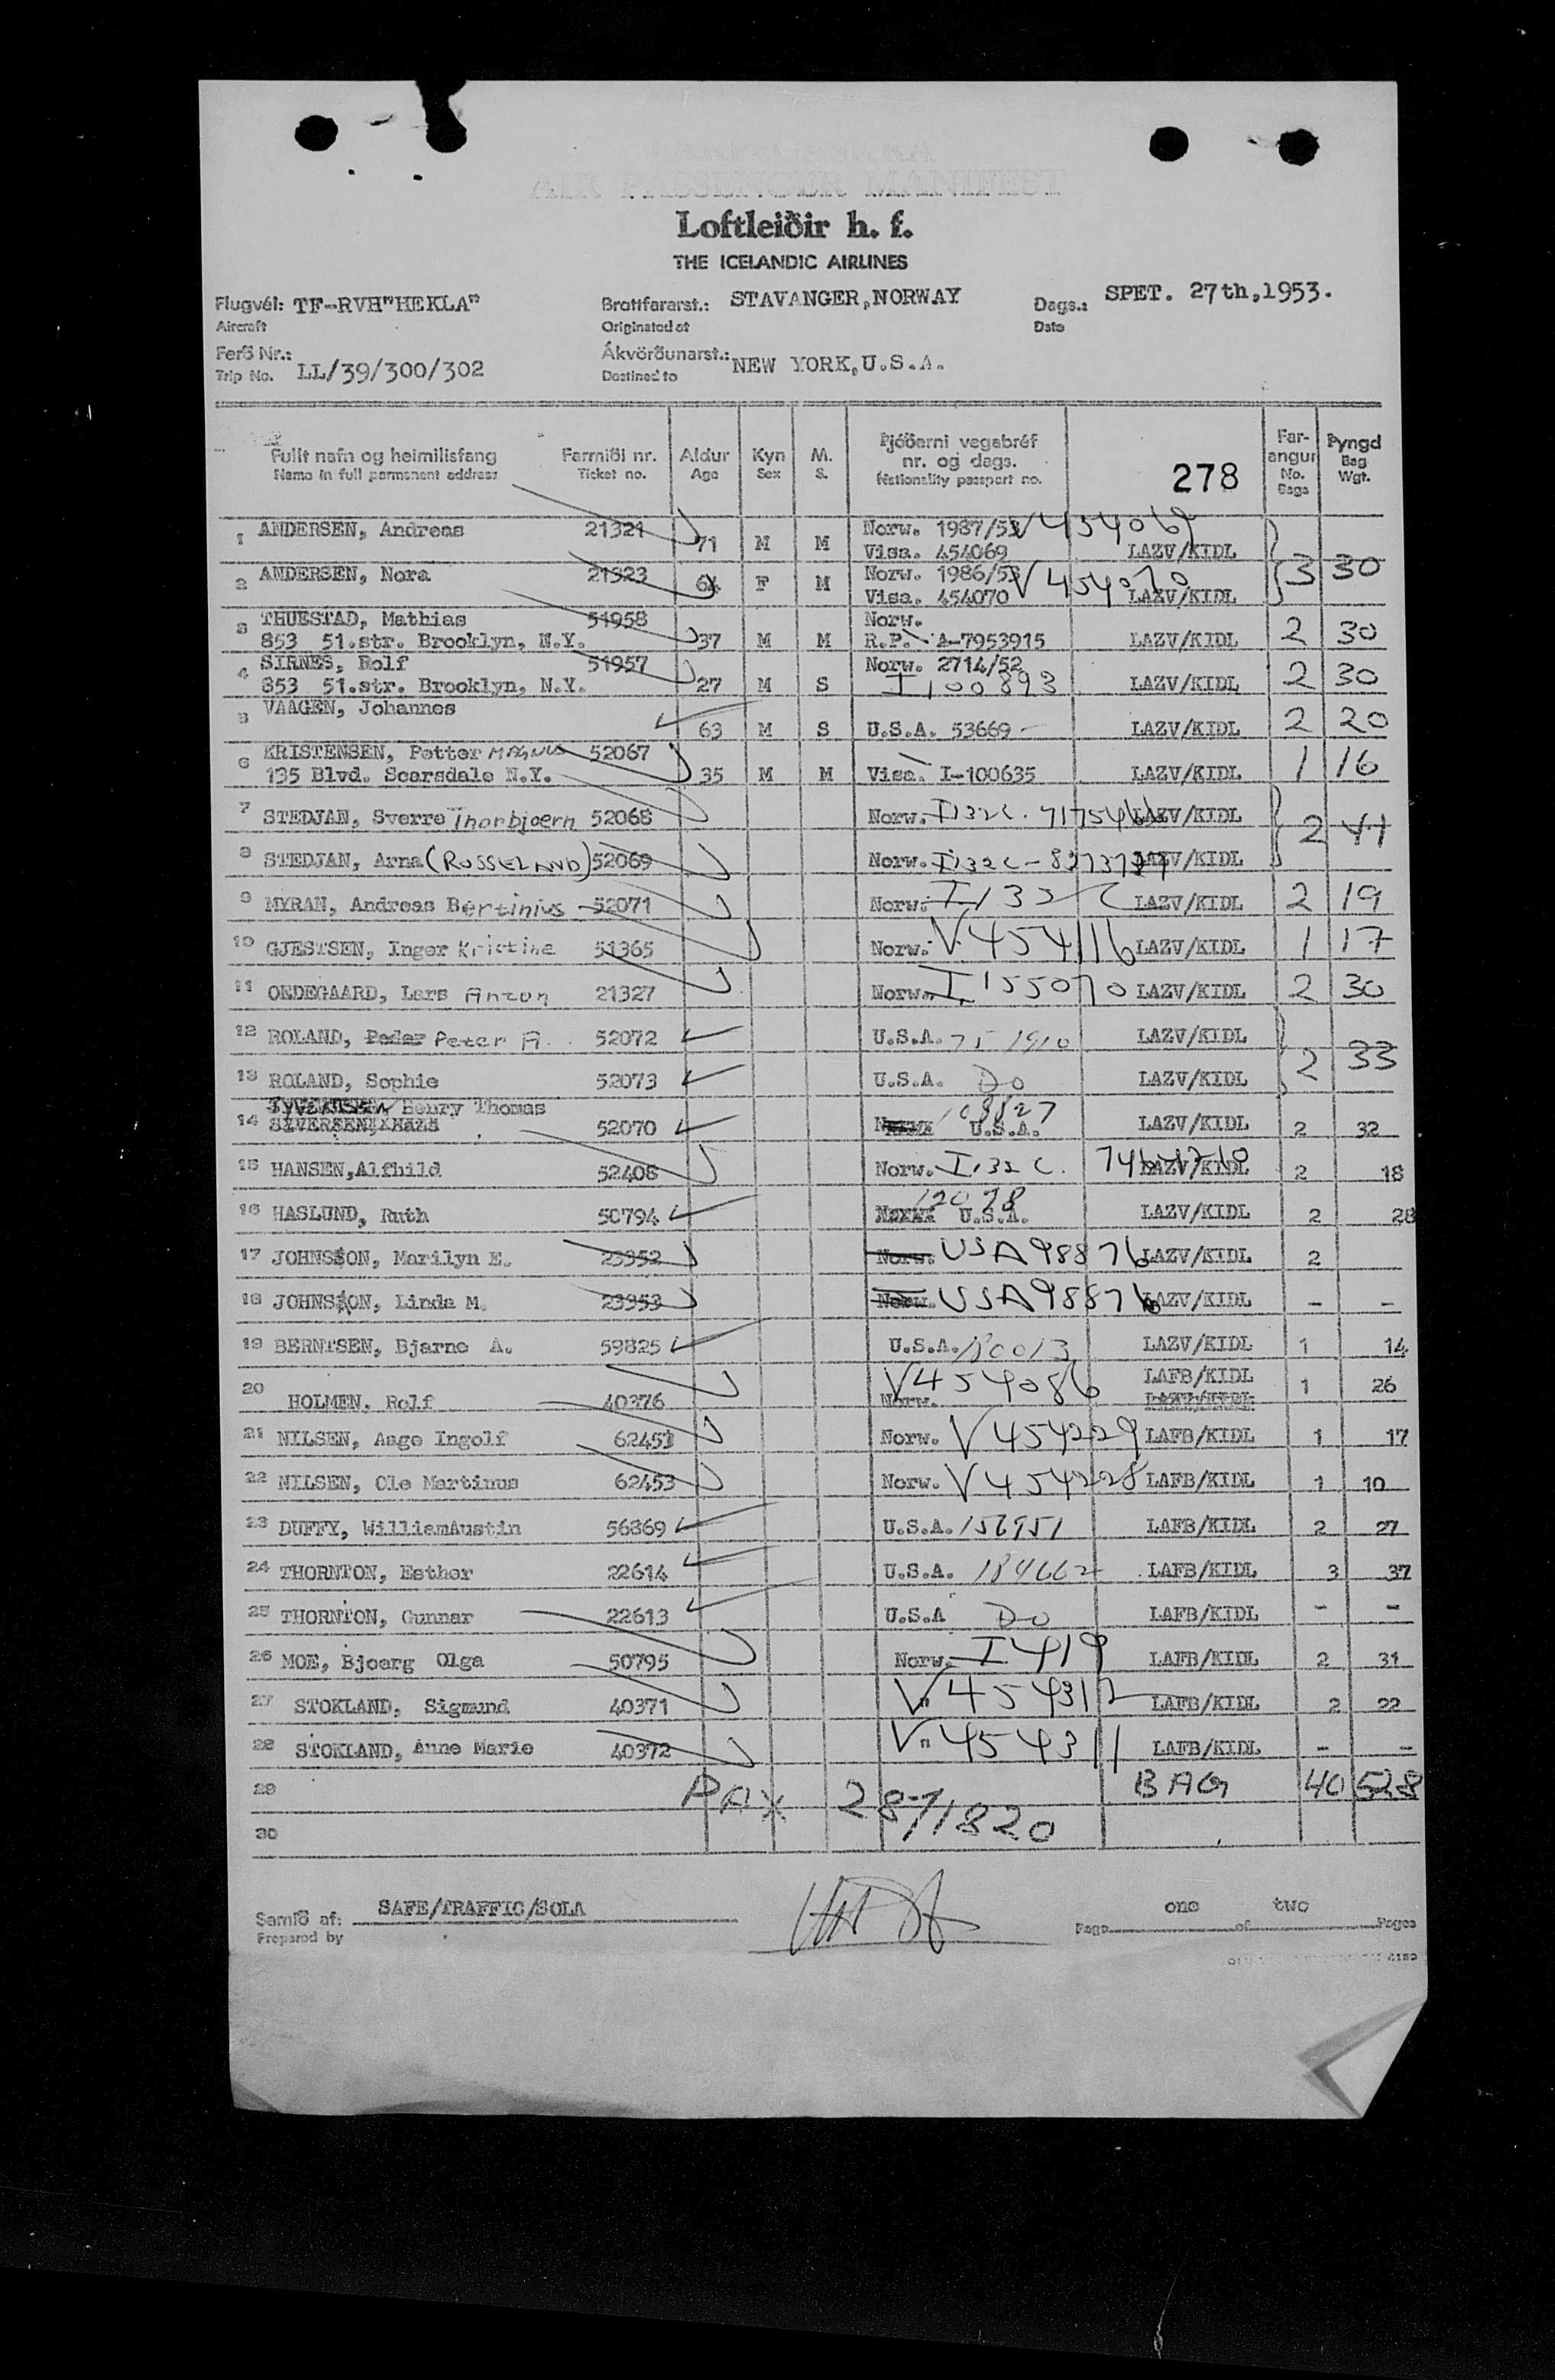 AIR PASSENGER MANIFEST
Loftleiðir h. f.
THE ICELANDIC AIRLINES
Flugvél: TF-RVH"HEKLA" Brottfararst.: STAVANGER,NORWAY Dags.: SPET. 27th,1953.
Aircraft Originated at Date
Ferð Nr.: Ákvörðunarst.: NEW YORK,U.S.A.
Trip No. LL/39/300/302 Destined to
Fullt nafn og heimilisfang Farmiði nr. Aldur Kyn M. Þjóðerni vegabréf nr. og dags. 278 Far-angur Þyngd
Name in full permanent address Ticket no. Age Sex S. Nationality passport no. No. Bags Bag Wgt.
1 ANDERSEN, Andreas 21321 71 M M Norw. 1987/53 V454069
Visa. 454069 LAZV/KIDL
2 ANDERSEN, Nora 21323 64 F M Norw. 1986/53 V454070 3 30
Visa. 454070 LAZV/KIDL
3 THUESTAD, Mathias 51958 Norw.
853 51.str. Brooklyn, N.Y. 37 M M R.P. A-7953915 LAZV/KIDL 2 30
4 SIRNES, Rolf 51957 Norw. 2714/52
853 51.str. Brooklyn, N.Y. 27 M S I100893 LAZV/KIDL 2 30
5 VAAGEN, Johannes 63 M S U.S.A. 53669 LAZV/KIDL 2 20
6 KRISTENSEN, Petter MAGNUS 52067
135 Blvd. Scarsdale N.Y. 35 M M Visa. I-100635 LAZV/KIDL 1 16
7 STEDJAN, Sverre Thorbjoern 52068 Norw. I132C. LAZV/KIDL
8 STEDJAN, Arna (ROSSELAND) 52069 Norw. I132C- LAZV/KIDL 2 41
9 MYRAN, Andreas Bertinius 52071 Norw. I132C LAZV/KIDL 2 19
10 GJESTSEN, Inger Kristine 51365 Norw. V.454116 LAZV/KIDL 1 17
11 OEDEGAARD, Lars Anton 21327 Norw. I155070 LAZV/KIDL 2 30
12 ROLAND, Peder Peter A. 52072 U.S.A. 75 1910 LAZV/KIDL
13 ROLAND, Sophie 52073 U.S.A. Do LAZV/KIDL 2 33
14 Henry Thomas 108827
SIVERSEN, Hans 52070 U.S.A. LAZV/KIDL 2 32
15 HANSEN,Alfhild 52408 Norw. I132C. LAZV/KIDL 2 18
16 HASLUND, Ruth 50794 12078 U.S.A. LAZV/KIDL 2 28
17 JOHNSSON, Marilyn E. 23952 Norw. USA98876 LAZV/KIDL 2
18 JOHNSSON, Linda M. 23953 Norw. USA98876 LAZV/KIDL - -
19 BERNTSEN, Bjarne A. 59825 U.S.A. 180013 LAZV/KIDL 1 14
20 V454086 LAFB/KIDL 1 26
HOLMEN, Rolf 40376 Norw. LAZV/KIDL
21 NILSEN, Aage Ingolf 62451 Norw. V454229 LAFB/KIDL 1 17
22 NILSEN, Ole Martinus 62453 Norw. V454228 LAFB/KIDL 1 10
23 DUFFY, WilliamAustin 56869 U.S.A. 156951 LAFB/KIDL 2 27
24 THORNTON, Esther 22614 U.S.A. 184662 LAFB/KIDL 3 37
25 THORNTON, Gunnar 22613 U.S.A Do LAFB/KIDL - -
26 MOE, Bjoerg Olga 50795 Norw. I419 LAFB/KIDL 2 31
27 STOKLAND, Sigmund 40371 V" 454312 LAFB/KIDL 2 22
28 STOKLAND, Anne Marie 40372 V" 454311 LAFB/KIDL - -
29 PAX 28/1820 BAG 40 528
30
Samið af: SAFE/TRAFFIC/SOLA
Prepared by Page one of two Pages